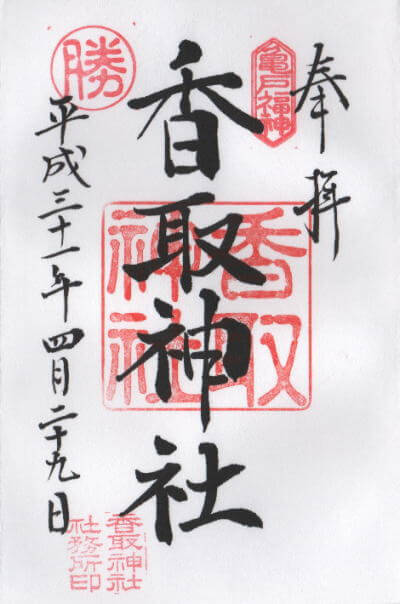 奉拝
亀戸福神
香取神社
香取神社
勝
平成三十一年四月二十九日
香取神社
社務所印